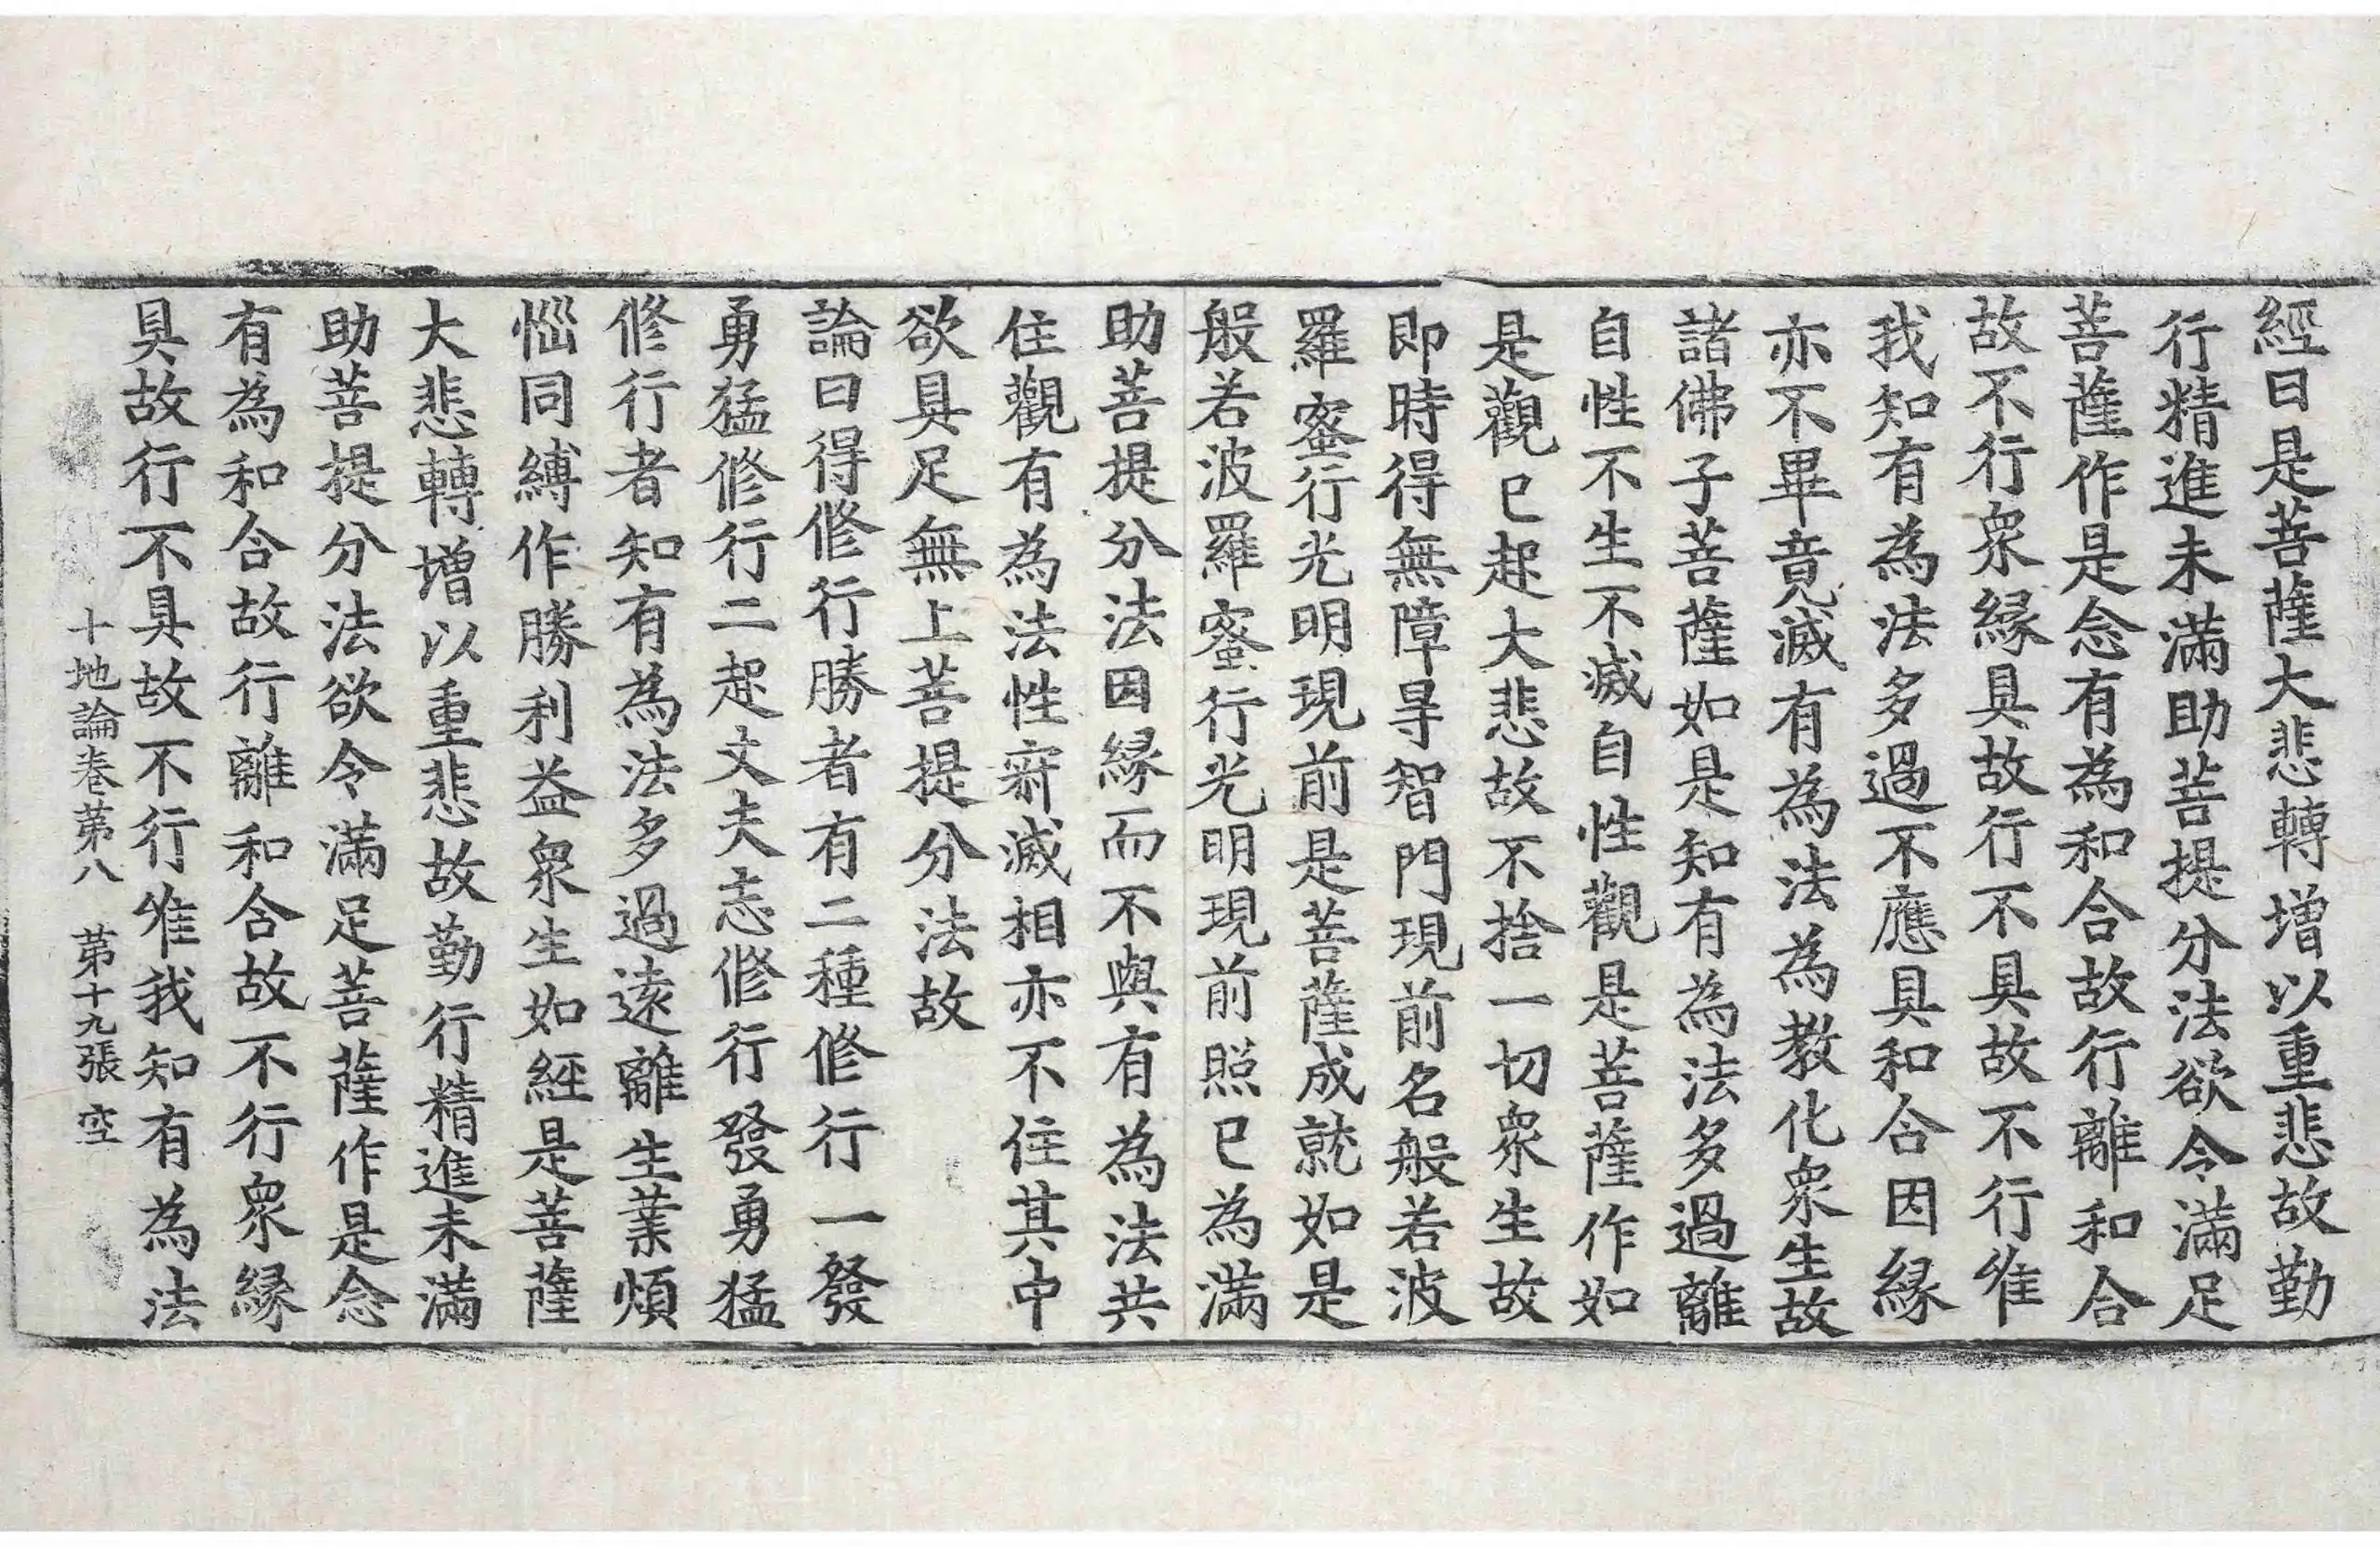 經曰是菩薩大悲轉增以重悲故勤
行精進未滿助菩提分法欲令滿足
菩薩作是念有為和合故行離和合
故不行衆緣具故行不具故不行唯
我知有為法多過不應具和合因緣
亦不畢竟滅有為法為教化衆生故
諸佛子菩薩如是知有為法多過離
自性不生不滅自性觀是菩薩作如
是觀已起大悲故不捨一切衆生故
即時得無障㝵智門現前名般若波
羅蜜行光明現前是菩薩成就如是
般若波羅蜜行光明現前照已為滿
助菩提分法因緣而不與有為法共
住觀有為法性寂滅相亦不住其中
欲具足無上菩提分法故
論曰得修行勝者有二種修行一發
勇猛修行二起丈夫志修行發勇猛
修行者知有為法多過遠離生業煩
惱同縛作勝利益衆生如經是菩薩
大悲轉增以重悲故勤行精進未滿
助菩提分法欲令滿足菩薩作是念
有為和合故行離和合故不行衆緣
具故行不具故不行唯我知有為法
十地論卷第八　第十九張　空